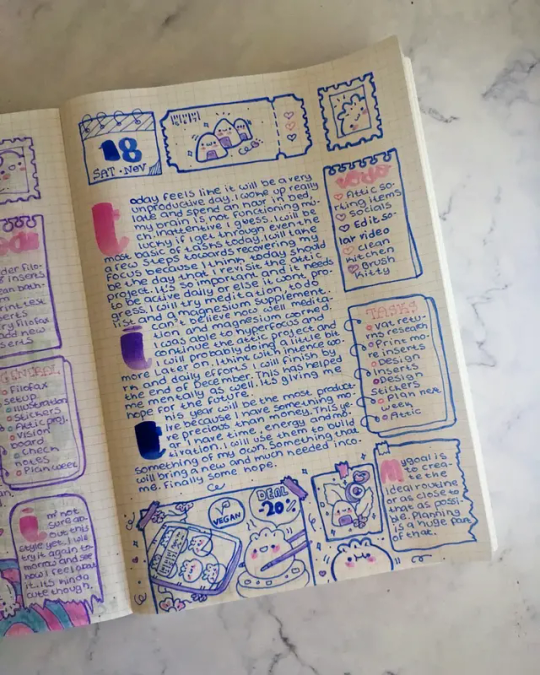 18
SAT·NOV
Today feels like it will be a very
unproductive day. I woke up really
late and spend an hour in bed,
my brain is not functioning mu-
ch inattentive i guess. I will be
lucky if i get through even the
most basic of tasks today. I will take
a few steps towards recovering my
focus because i think today should
be the day that i revisit the attic
project. It's so important and it needs
to be active daily or else it won't pro-
gress, I will try meditation, to do
list and a magnesium supplement.
I can't believe how well medita-
tion and magnesium worked.
I was able to hyperfocus and
continue the attic project and
I will probably doing a little bit
more later on, I think with intense wo-
rk and daily efforts i will finish by
the end of December. This has helped
me mentally as well. Its giving me
hope for the future.
This year will be the most produc-
tive because i have something mo-
re precious than money. This ye-
ar I have time, energy and mo-
tivation. I will use them to build
something of my own. Something that
will bring a new and much needed inco-
me. Finally some hope.
TO DO
Attic so-
rting items
Socials
Edit so-
lar video
Clean
kitchen
Brush
kitty
TASKS
Print mo-
re inserts
Design
inserts
Design
stickers
Plan next
week
Attic
My goal is
to crea-
te the
ideal routine
or as close to
that as possi-
ble. Planning
is a huge part
of that.
VEGAN
DEAL
-20%
GENERAL
Filofax
setup
Illustration
Stickers
Attic proj.
Vision
board
Check
notes
Plan week
I'm not
sure ab-
out this
style yet. I will
try it again to-
morrow and see
how I feel about
it. Its kinda
cute though.